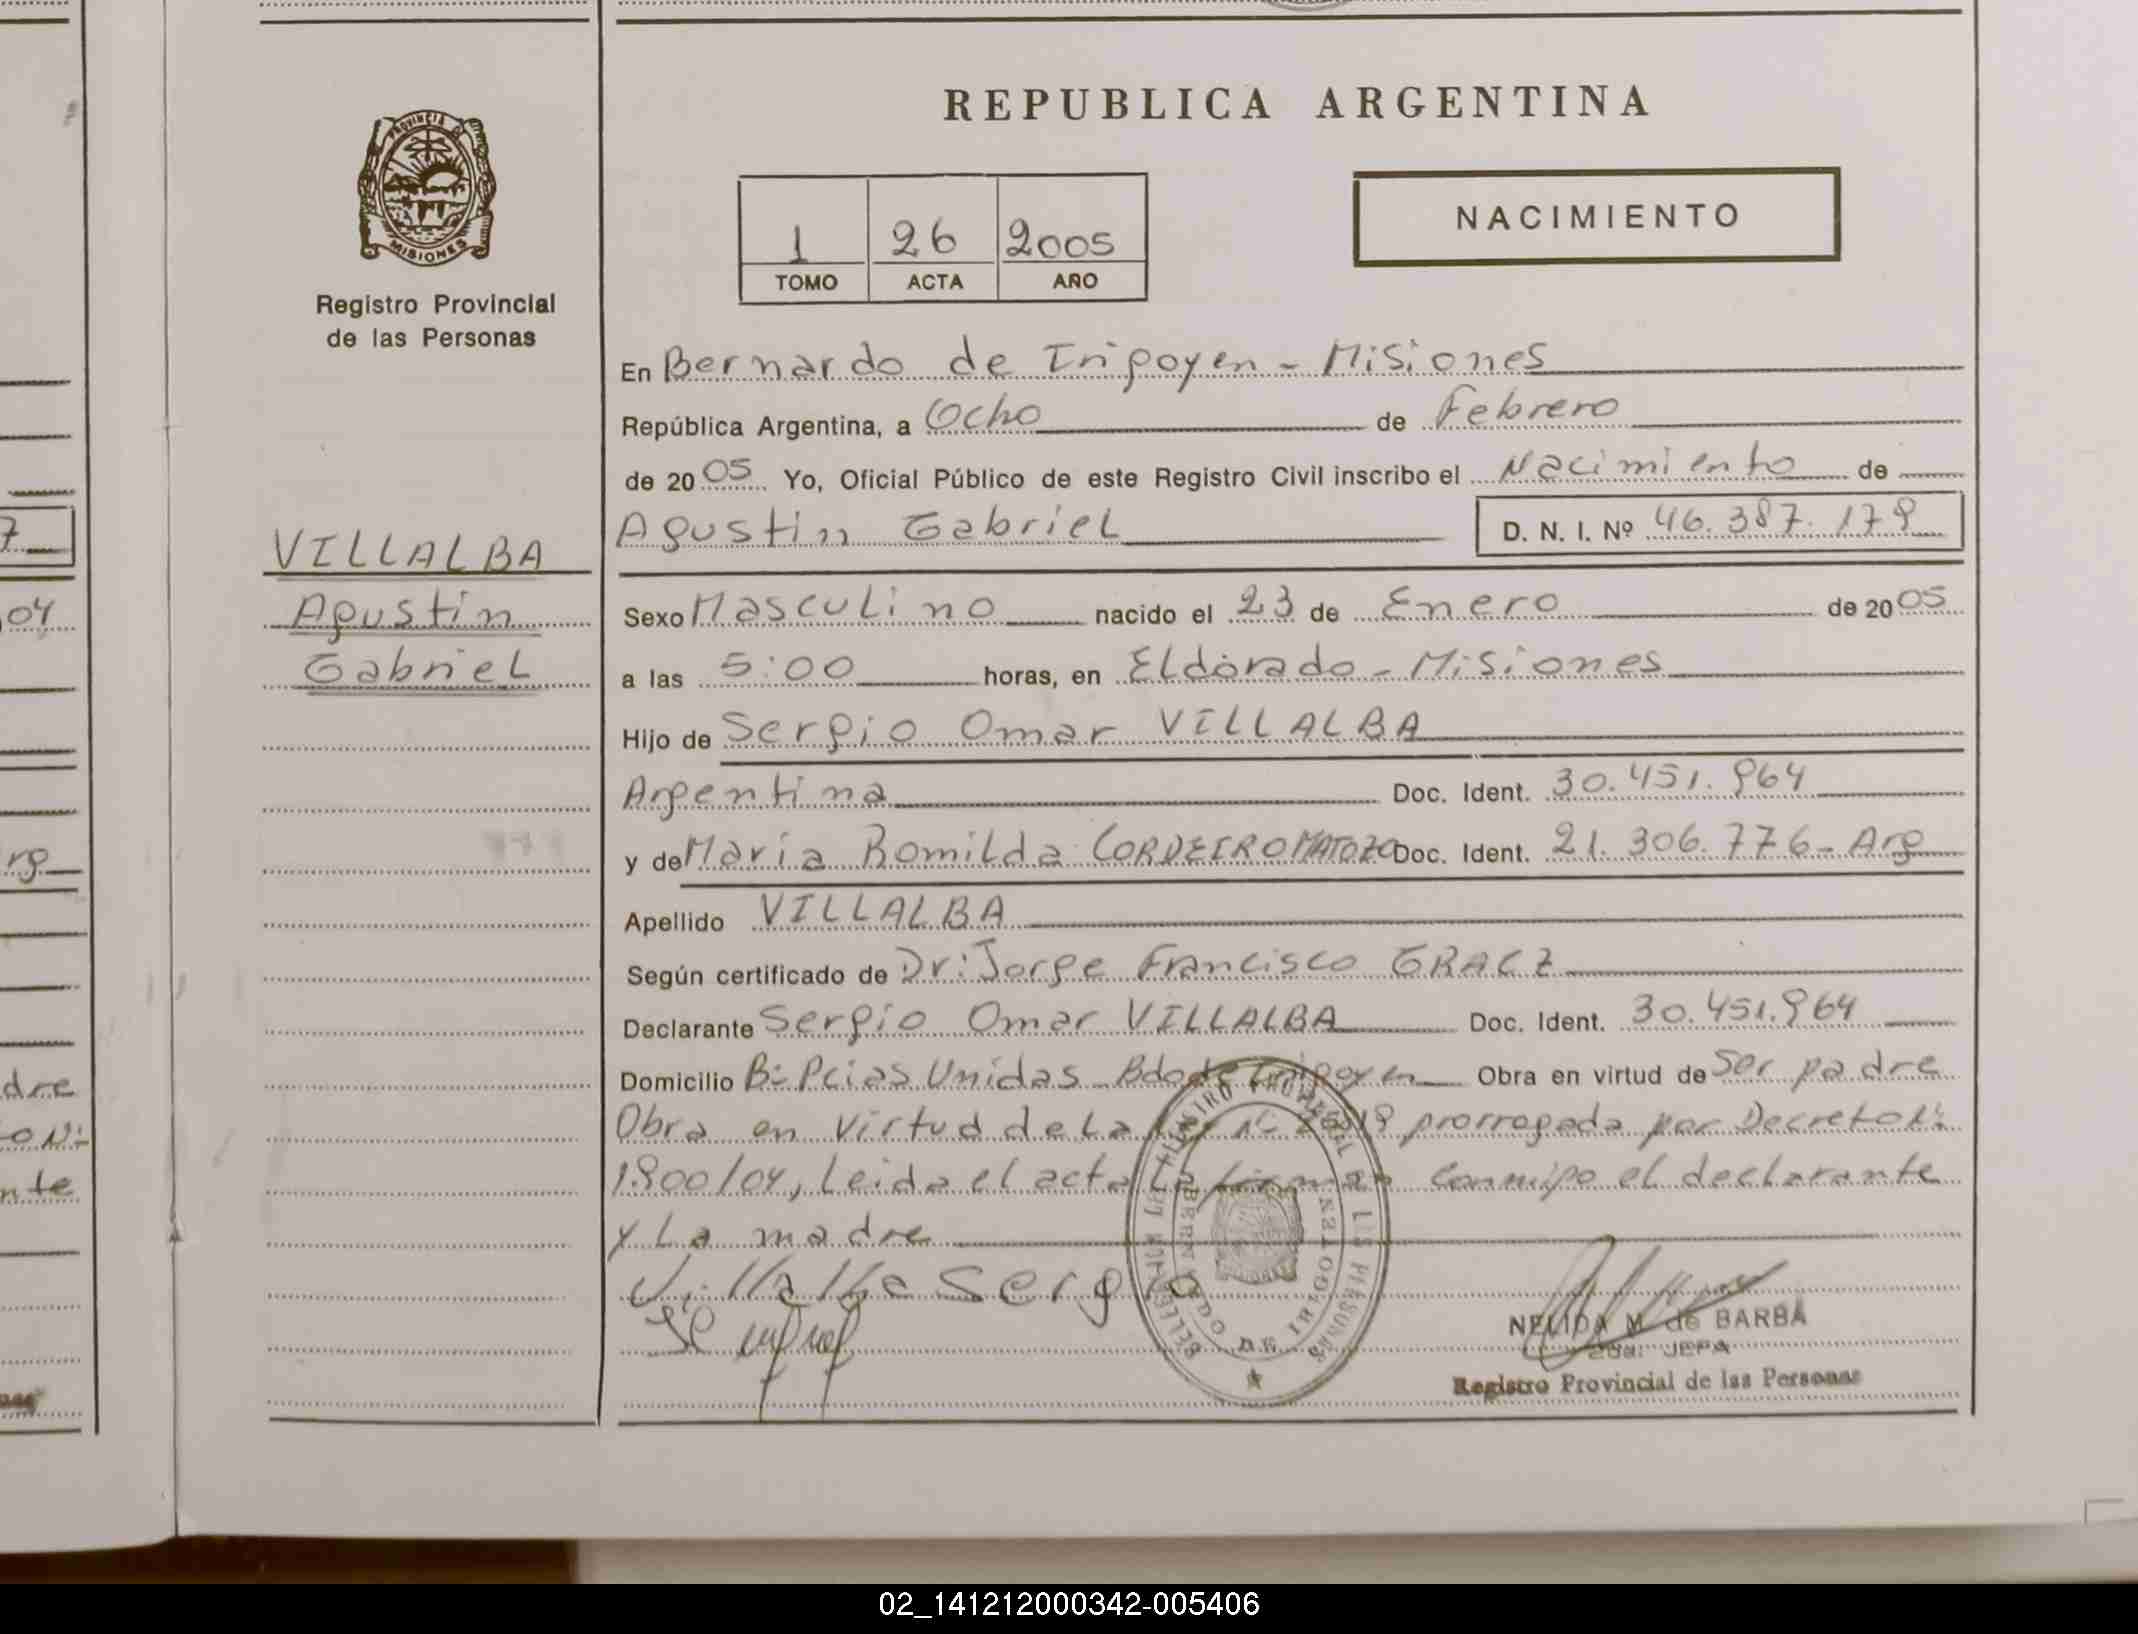 REPUBLICA ARGENTINA
PROVINCIA DE
MISIONES
Registro Provincial
de las Personas
1 26 2005
TOMO ACTA AÑO
NACIMIENTO
En Bernardo de Irigoyen - Misiones
República Argentina, a Ocho de Febrero
de 2005 Yo, Oficial Público de este Registro Civil inscribo el Nacimiento de
VILLALBA
Agustin
Gabriel
Agustin Gabriel D. N. I. Nº 46.387.179
Sexo Masculino nacido el 23 de Enero de 2005
a las 5:00 horas, en Eldorado - Misiones
Hijo de Sergio Omar VILLALBA
Argentina Doc. Ident. 30.451.964
y de Maria Romilda CORDEIRO MATOZO Doc. Ident. 21.306.776 - Arg
Apellido VILLALBA
Según certificado de Dr: Jorge Francisco GRACZ
Declarante Sergio Omar VILLALBA Doc. Ident. 30.451.964
Domicilio Bº Pcias Unidas Bdo de Irigoyen Obra en virtud de Ser padre
Obra en virtud de La Ley Nº prorrogada por Decreto Nº
1900/04, Leida el acta La firman conmigo el declarante
y La madre
Villalba Sergio
NELIDA M. de BARBA
2da. JEFA
Registro Provincial de las Personas
7
04
rg
dre
to Nº
nte
02_141212000342-005406